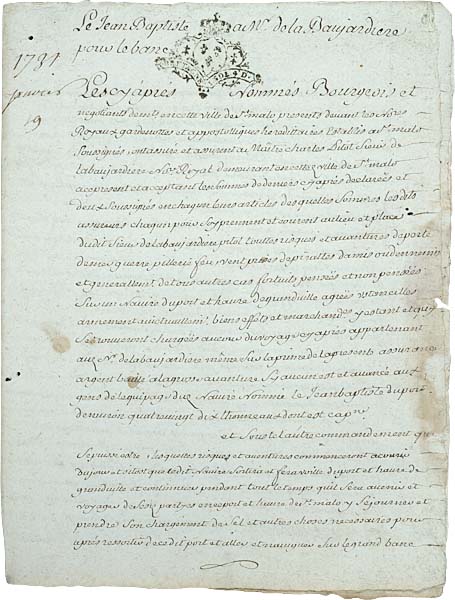 Le Jean Baptiste a Mr. de la Baujardiere
pour le banc
1734
janvier
19
Les cy après Nommés Bourgeois et
negotiants dem.ts en cette ville de St. malo presents devant les No.res
Royaux gardenottes et appostoliques hereditaires Establis a St. malo
Soussignés ont assuré et assurent au Maitre Charles Pitot Sieur de
labaujardiere No.re Royal demeurant en cette ville de St. malo
ce present et acceptant les sommes de deniers cy après declarées et
deux Soussignés en chaqun leurs articles desquelles Sommes lesdits
assureurs chaqun pour Soy prennent et courent au lieu et place
dudit Sieur de labaujardiere pitot touttes risques et avantures de perte
de mer guerre pillerie feu vent prises depiratles damis ou dennemis
et generallement de tous autres cas fortuits pensés et non pensés
Sur un Navire du port et havre de granville agrés ustencilles
armement avictuaillem.t biens effets et marchandes y estant et qui
Se trouveront chargées au cours du voyage cy après appartenant
aux Sr. de labaujardiere même Sur la prime de la presente assurance
argent baillé ala grosse avanture Sy aucun est et avancé aux
gens de lequipage du Navire Nommé le Jean baptiste du port
denviron quatre vingt dix thonneaux dont est cap.ne
et Sous tel autre commandement que
Se puisse estre lesquelles risques et aventures commenceront a courir
du jour et si tost que ledit Navire Sortira et fera voille du port et havre de
grandville et continuera pendant tout le temps quil Sera a venir et
voyages de Son partyes en ce port et havre de St. malo y Séjourner et
prendre Son chargement de Sel et autres choses necessaires pour
après ressortir de ce dit port et aller et naviguer Sur le grand banc